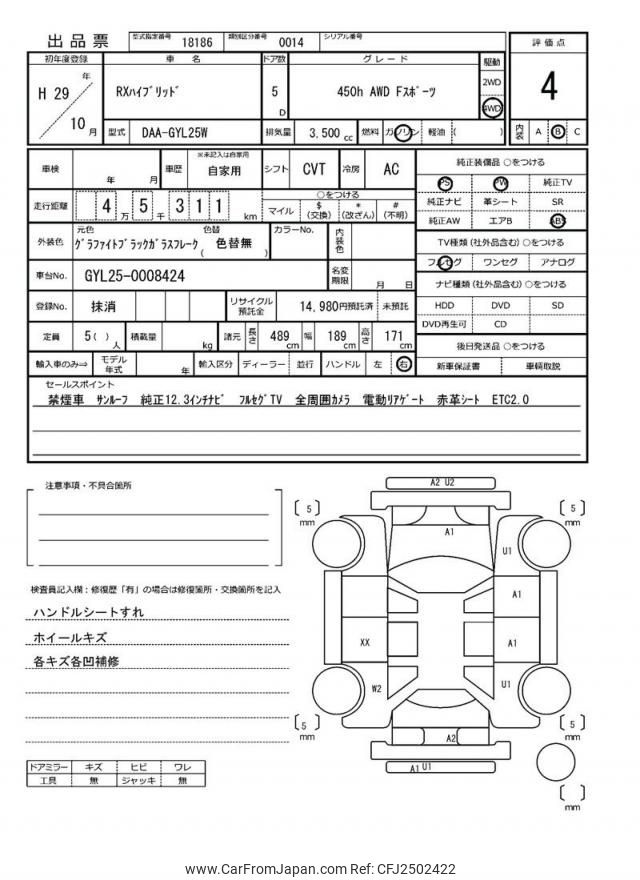 出品票 型式指定番号 18186 類別区分番号 0014 シリアル番号
初年度登録 車 名 ドア数 グレード 駆動 評価点
H 29 年 RXﾊｲﾌﾞﾘｯﾄﾞ 5 D 450h AWD Fｽﾎﾟｰﾂ 2WD 4
4WD
10 月 型式 DAA-GYL25W 排気量 3,500 cc 燃料 ガソリン 軽油 ( ) 内装 A B C
車検 年 月 車歴 ※未記入は自家用 自家用 シフト CVT 冷房 AC 純正装備品 ○をつける
PS PW 純正TV
走行距離 4 万 5 千 3 1 1 km ○をつける
マイル $(交換) *(改ざん) #(不明) 純正ナビ 革シート SR
純正AW エアB ABS
外装色 元色 色替 カラーNo. 内装色 TV種類 (社外品含む) ○をつける
ｸﾞﾗﾌｧｲﾄﾌﾞﾗｯｸｶﾞﾗｽﾌﾚｰｸ ( 色替無 ) フルセグ ワンセグ アナログ
車台No. GYL25-0008424 名変期限 月 日 ナビ種類 (社外品含む) ○をつける
登録No. 抹消 リサイクル預託金 14,980円預託済 未預託 HDD DVD SD
DVD再生可 CD
定員 5( )人 積載量 kg 諸元 長さ 489 cm 幅 189 cm 高さ 171 cm 後日発送品 ○をつける
輸入車のみ⇒ モデル年式 年 輸入区分 ディーラー 並行 ハンドル 左 右 新車保証書 車輌取説
セールスポイント
禁煙車 ｻﾝﾙｰﾌ 純正12.3ｲﾝﾁﾅﾋﾞ ﾌﾙｾｸﾞTV 全周囲ｶﾒﾗ 電動ﾘｱｹﾞｰﾄ 赤革ｼｰﾄ ETC2.0
注意事項・不具合箇所
検査員記入欄：修復歴「有」の場合は修復箇所・交換箇所を記入
ハンドルシートすれ
ホイールキズ
各キズ各凹補修
ドアミラー キズ ヒビ ワレ
工具 無 ジャッキ 無
A2 U2
[ 5 ] mm
[ 5 ] mm
A1
U1
A1
XX
A1
W2
U1
[ 5 ] mm
[ 5 ] mm
A2
A1 U1
[ ] mm
www.CarFromJapan.com Ref: CFJ2502422